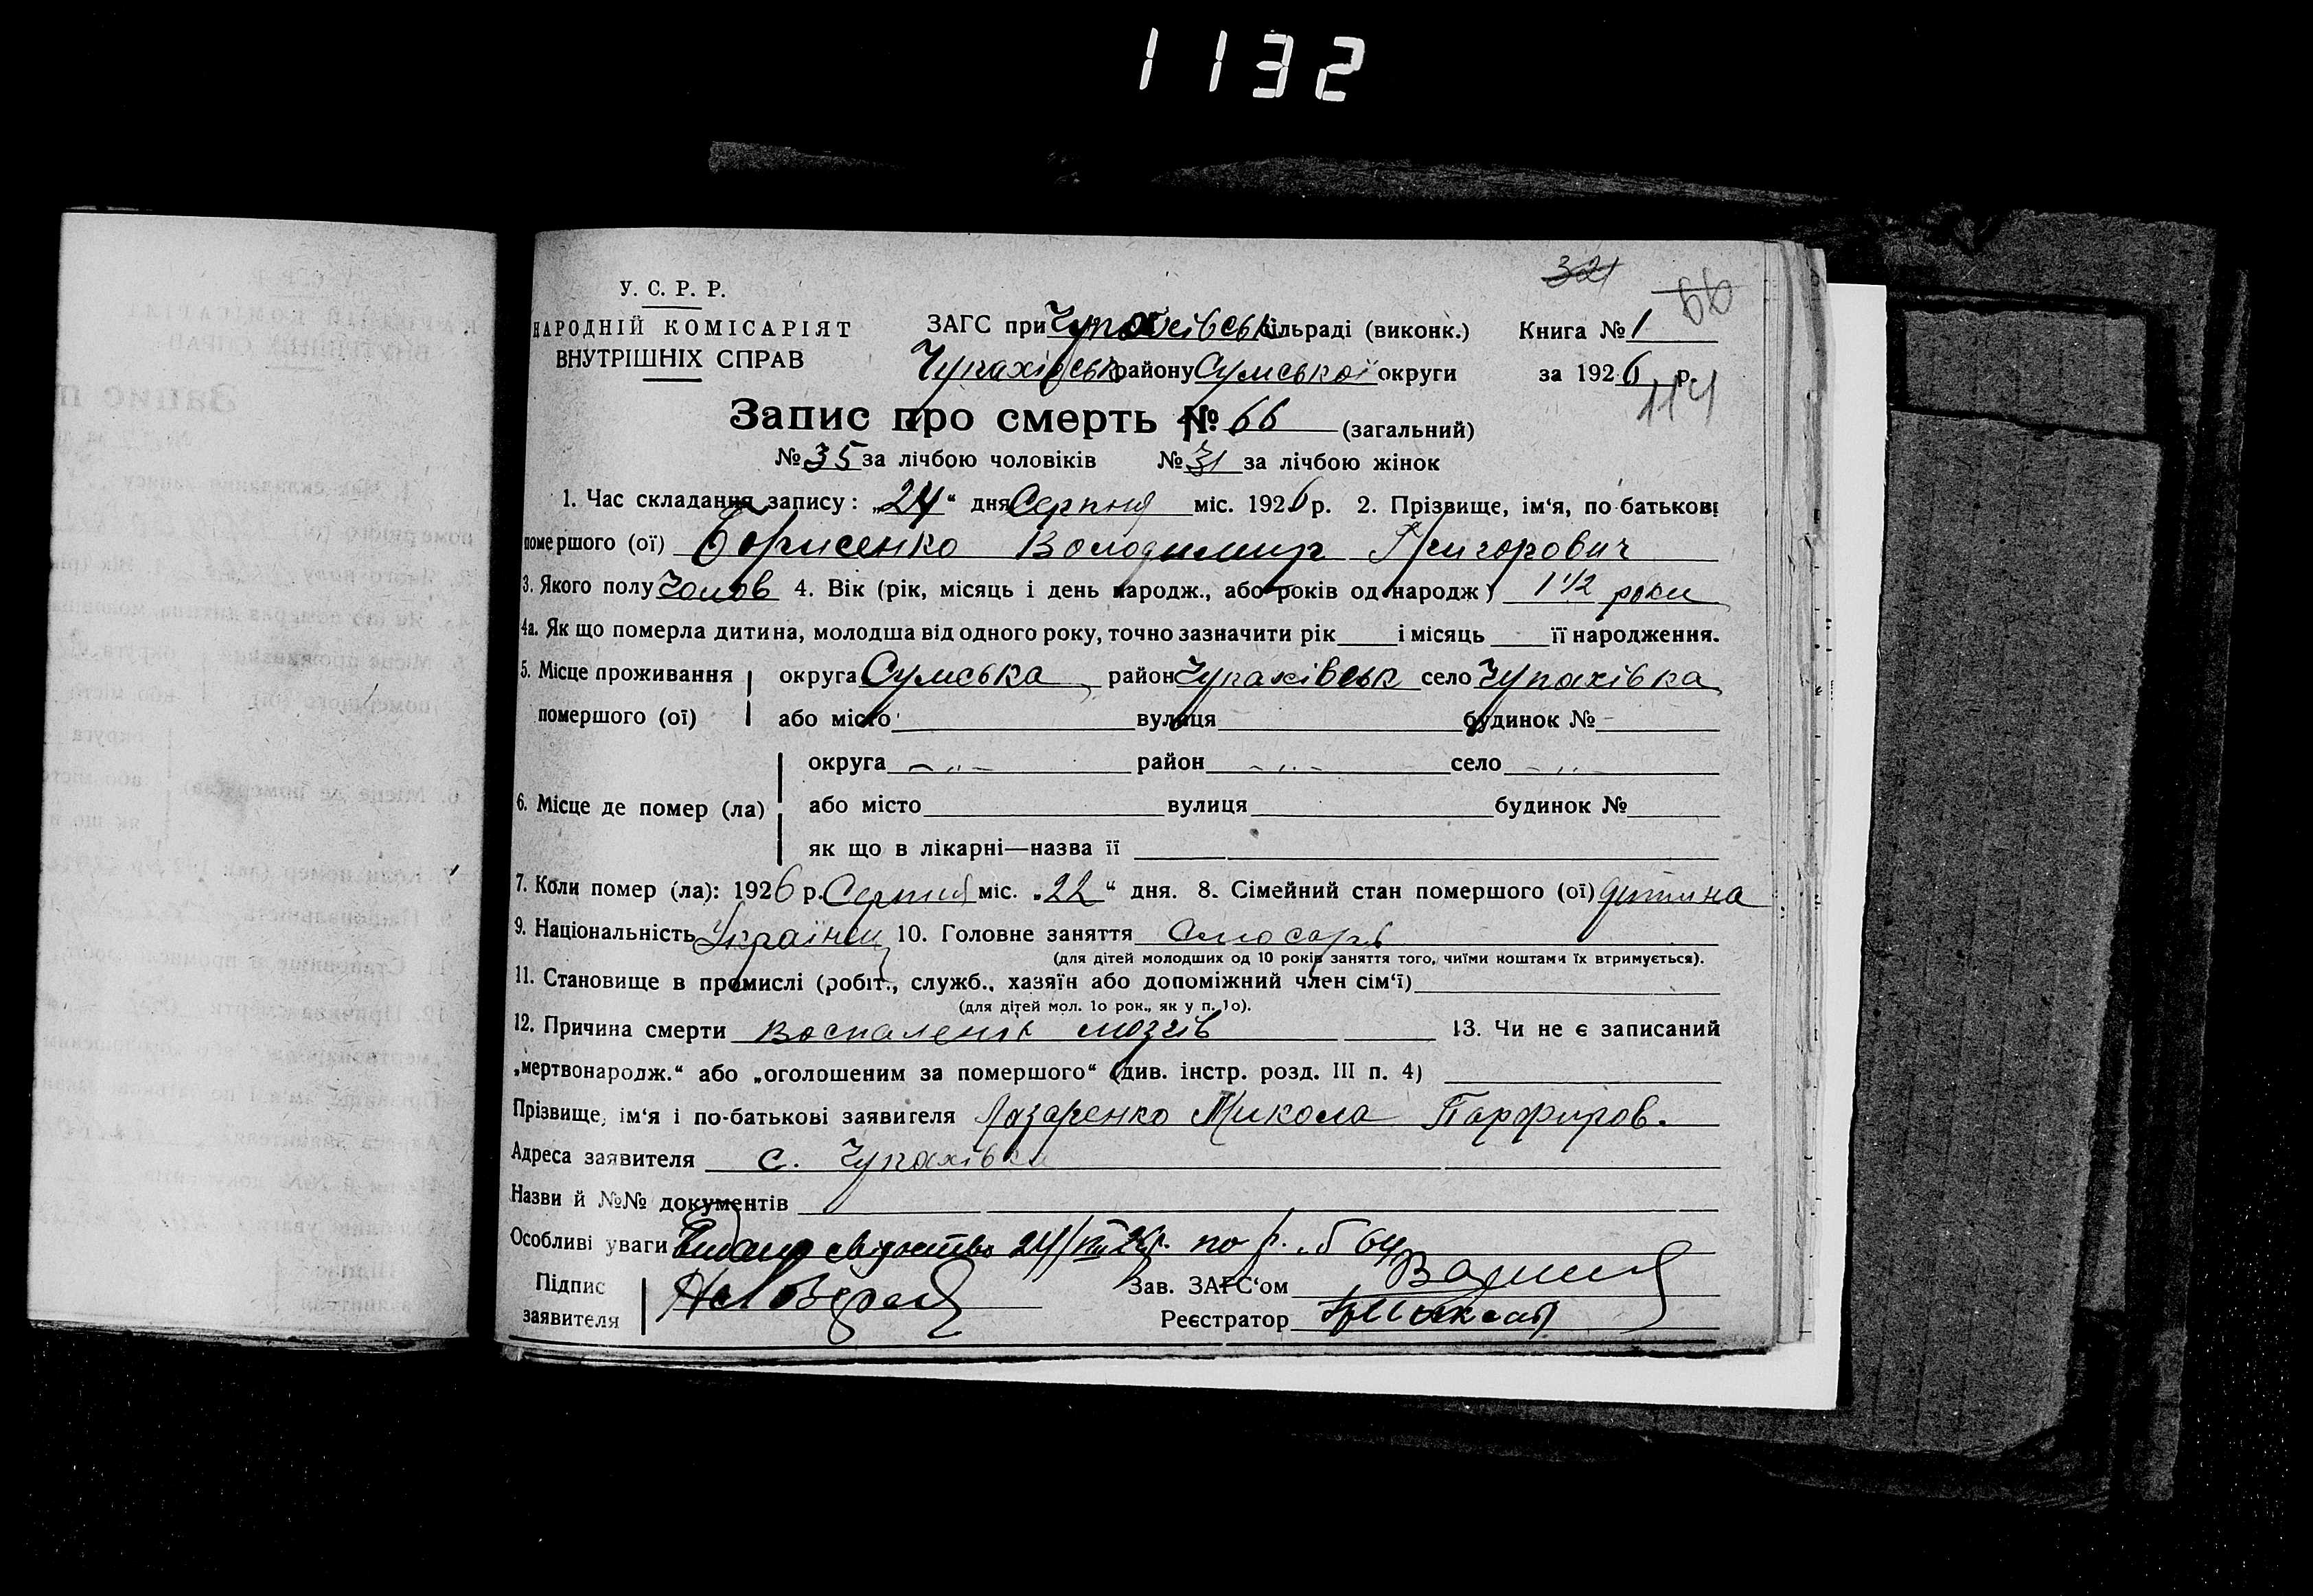 1132
321
66
У. С. Р. Р.
НАРОДНІЙ КОМІСАРІЯТ
ВНУТРІШНІХ СПРАВ
ЗАГС при Чупахівськ сільраді (виконк.) Книга № 1
Чупахівськ району Сумської округи за 1926 р.
114
Запис про смерть № 66 (загальний)
№ 35 за лічбою чоловіків № 31 за лічбою жінок
1. Час складання запису: „24“ дня Серпня міс. 1926 р. 2. Прізвище, ім‘я, по-батькові
помершого (ої) Борисенко Володимир Григорович
3. Якого полу Чолов 4. Вік (рік, місяць і день народж., або років од народж) 1 1/2 роки
4а. Як що померла дитина, молодша від одного року, точно зазначити рік і місяць її народження.
5. Місце проживання округа Сумська район Чупахівськ село Чупахівка
помершого (ої) або місто вулиця будинок № -
округа - „ - район - „ - село - „ -
6. Місце де помер (ла) або місто вулиця будинок №
як що в лікарні—назва її
7. Коли помер (ла): 1926 р. Серпня міс. „22“ дня. 8. Сімейний стан помершого (ої) дитина
9. Національність Українец 10. Головне заняття Слюсарь
(для дітей молодших од 10 років заняття того, чиїми коштами їх втримується).
11. Становище в промислі (робіт., служб., хазяїн або допоміжний член сім‘ї)
(для дітей мол. 1о рок., як у п. 1о).
12. Причина смерти Воспаленія мозгів 13. Чи не є записаний
„мертвонародж.“ або „оголошеним за помершого“ (див. інстр. розд. III п. 4)
Прізвище, ім‘я і по-батькові заявителя Лазаренко Микола Парфиров.
Адреса заявителя с. Чупахівка
Назви й №№ документів
Особливі уваги Видано свідоцтво 24/VIII 26 р. по р. № 64
Підпис Зав. ЗАГС‘ом
заявителя Реєстратор